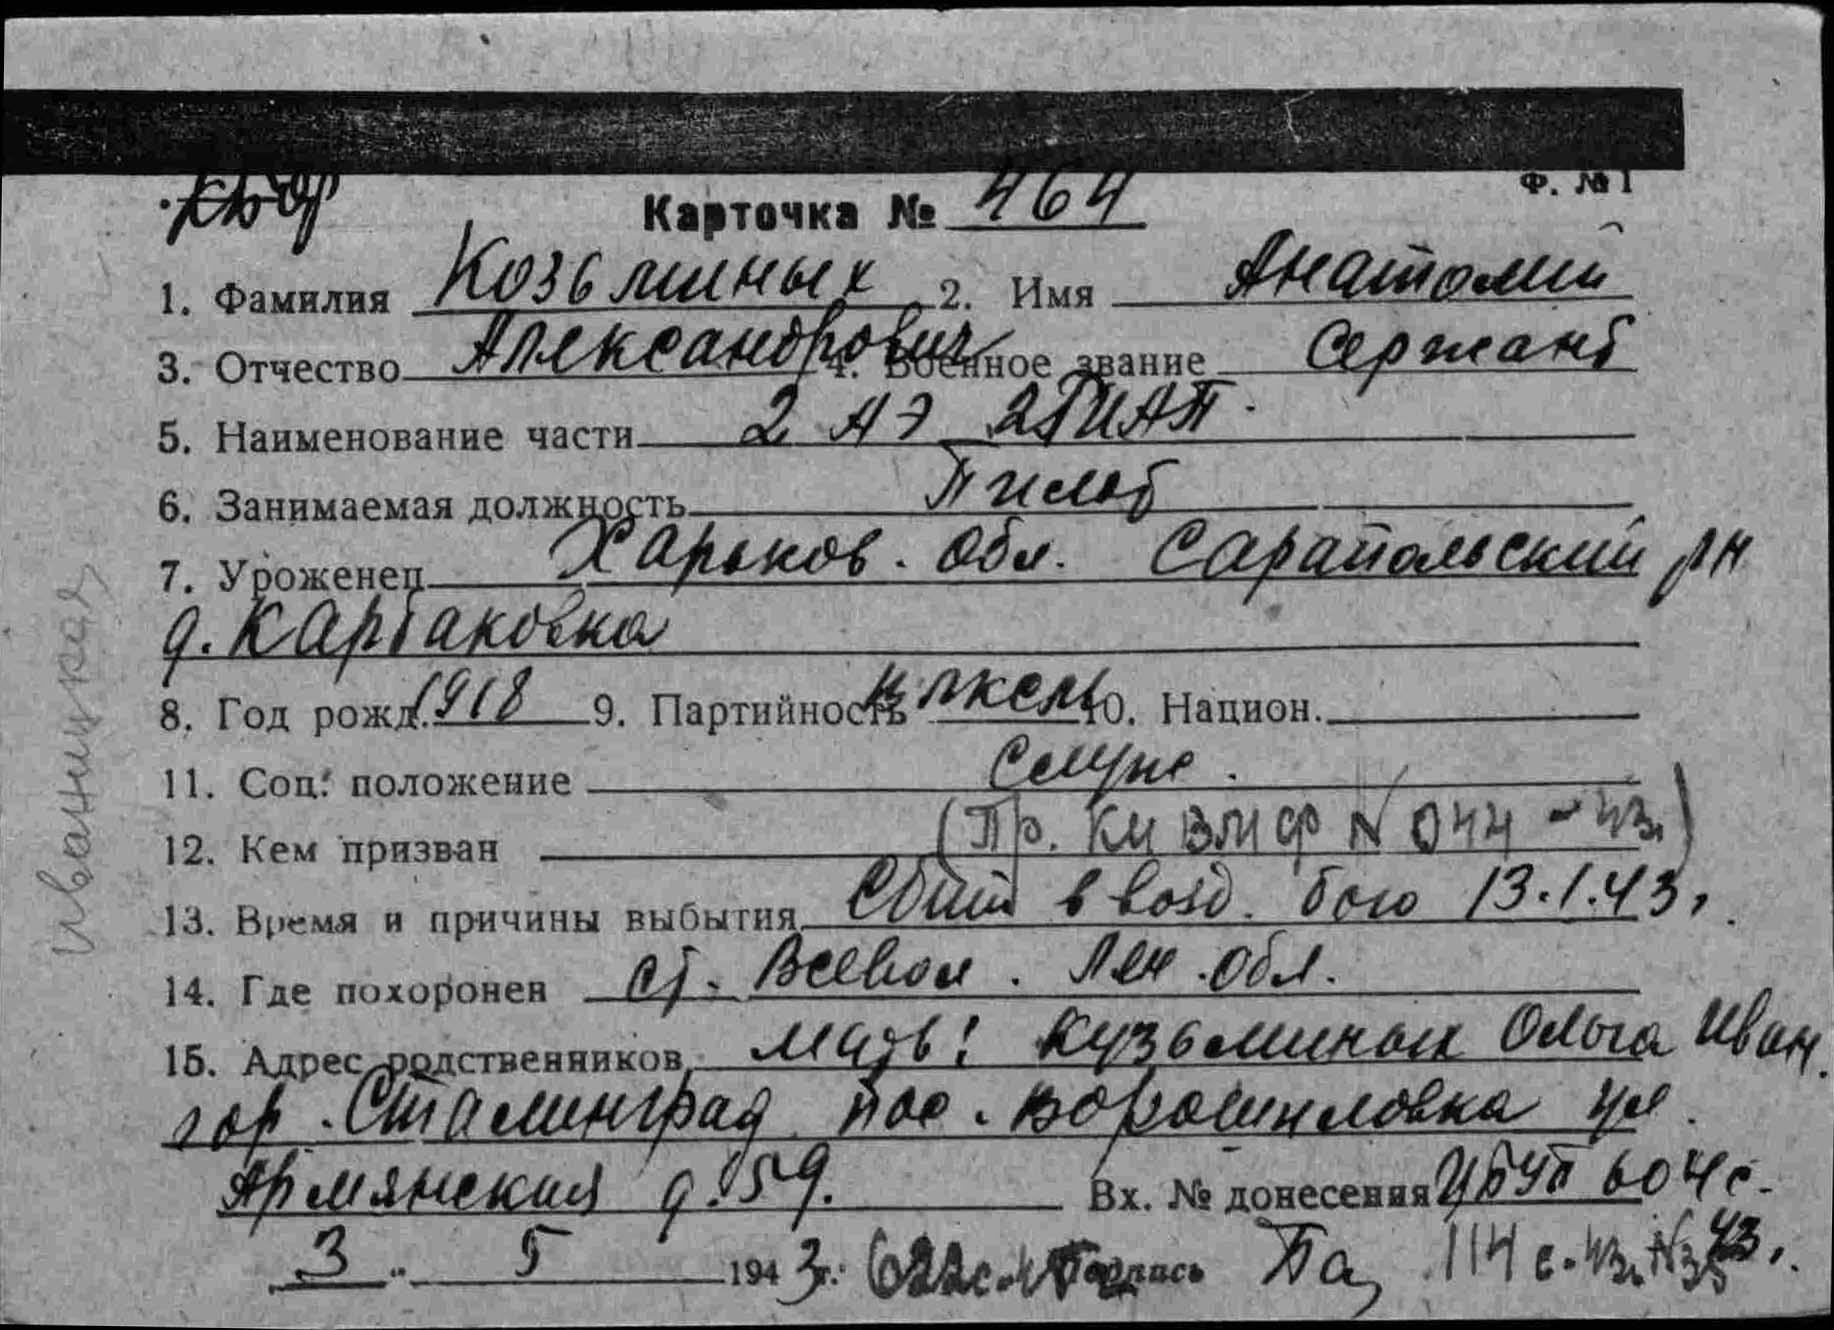 КБФ
Ф. №1
Карточка № 464
1. Фамилия Козьминых 2. Имя Анатолий
3. Отчество Александрович 4. Военное звание Сержант
5. Наименование части 2 АЭ 2ГИАП
6. Занимаемая должность Пилот
7. Уроженец Харьков. Обл. Сарапольский рн
д. Картаковка
8. Год рожд. 1918 9. Партийность чл ВЛКСМ 10. Национ.
11. Соц. положение Служ.
(Пр. КИ ВМФ № 044-43г.)
12. Кем призван
13. Время и причины выбытия Сбит в возд. бою 13.1.43г.
14. Где похоронен ст. Всевол. Лен. Обл.
15. Адрес родственников Мать: Кузьминых Ольга Иван.
гор. Сталинград пос. Ворошиловка ул.
Армянская д. 59.
Вх. № донесения ЦБУП 604с-
43.
3. 5 1943 г. 622с. Подпись 114с-43г.